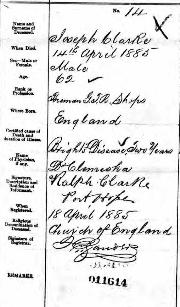 No. 14
Name and Surname of Deceased. Joseph Clarke
When Died. 14th April 1885
Sex—Male or Female. Male
Age. 62
Rank or Profession. Foreman G.T.R. Shops
Where Born. England
Certified cause of Death and duration of Illness. Bright's Disease, Two Years
Name of Physician, if any. Dr
Signature, Description and Residence of Informant. Ralph Clarke
Port Hope
When Registered. 18 April 1885
Religious Denomination of Deceased. Church of England
Signature of Registrar.
REMARKS.
011614